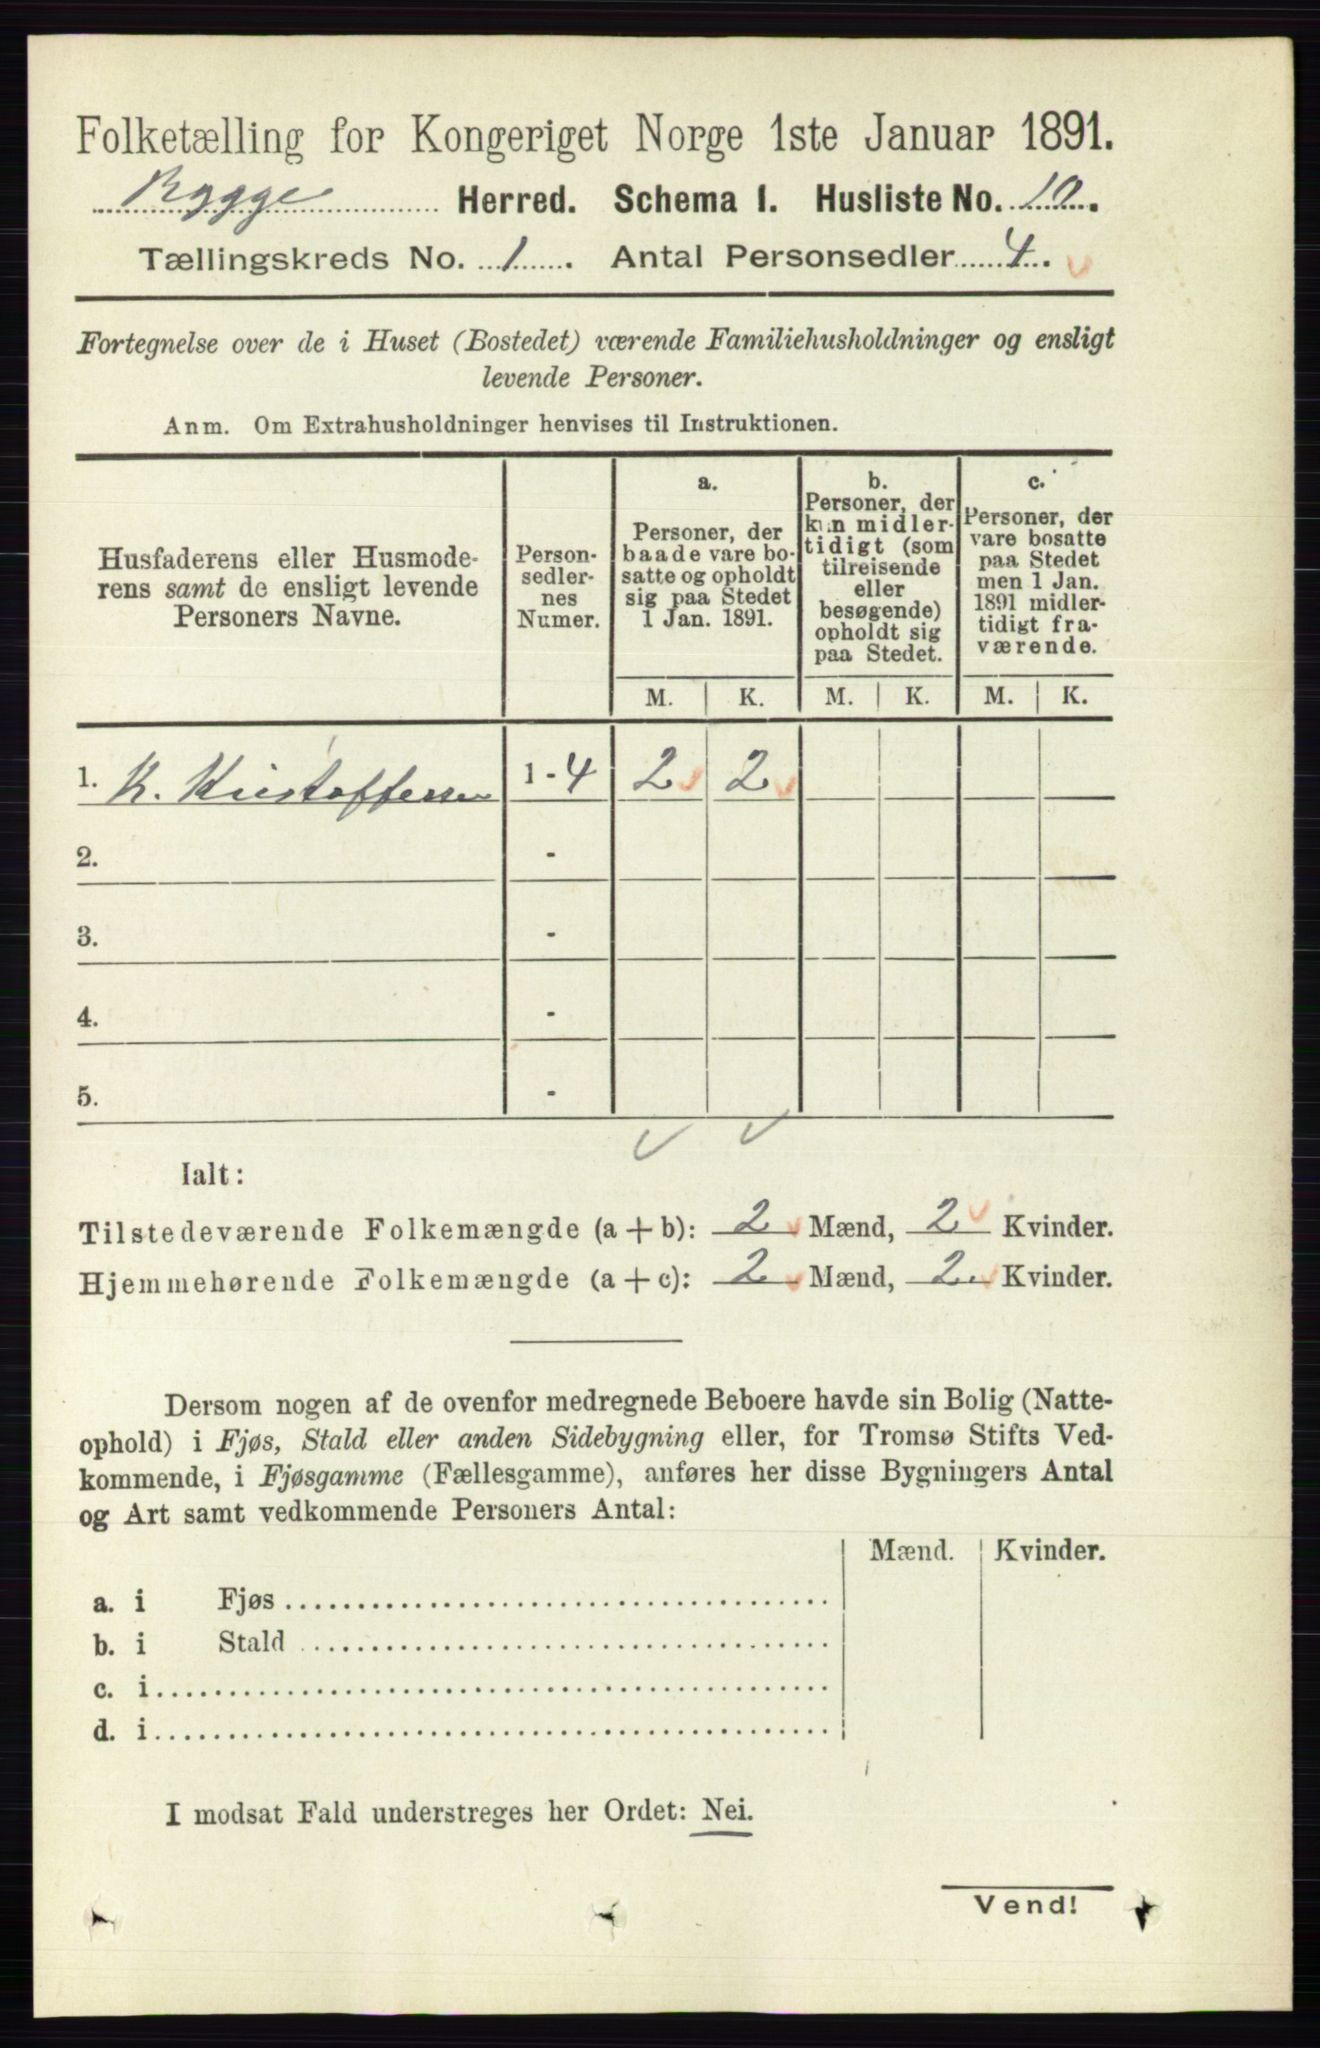 Folketælling for Kongeriget Norge 1ste Januar 1891.
Rygge Herred. Schema I. Husliste No. 10.
Tællingskreds No. 1. Antal Personsedler 4.
Fortegnelse over de i Huset (Bostedet) værende Familiehusholdninger og ensligt
levende Personer.
Anm. Om Extrahusholdninger henvises til Instruktionen.
Husfaderens eller Husmode-
rens samt de ensligt levende
Personers Navne.
Person-
sedler-
nes
Numer.
a.
Personer, der
baade vare bo-
satte og opholdt
sig paa Stedet
1 Jan. 1891.
b.
Personer, der
kun midler-
tidigt (som
tilreisende
eller
besøgende)
opholdt sig
paa Stedet.
c.
Personer, der
vare bosatte
paa Stedet
men 1 Jan.
1891 midler-
tidigt fra-
værende.
M. K. M. K. M. K.
1. K. Kristoffersen 1 - 4 2 2
2. -
3. -
4. -
5. -
Ialt:
Tilstedeværende Folkemængde (a + b): 2 Mænd, 2 Kvinder.
Hjemmehørende Folkemængde (a + c): 2 Mænd, 2 Kvinder.
Dersom nogen af de ovenfor medregnede Beboere havde sin Bolig (Natte-
ophold) i Fjøs, Stald eller anden Sidebygning eller, for Tromsø Stifts Ved-
kommende, i Fjøsgamme (Fællesgamme), anføres her disse Bygningers Antal
og Art samt vedkommende Personers Antal:
Mænd. Kvinder.
a. i Fjøs
b. i Stald
c. i
d. i
I modsat Fald understreges her Ordet: Nei.
Vend!